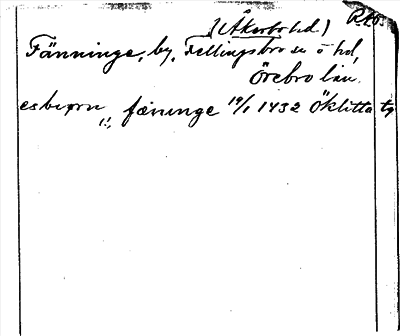 (Åkerbo hd.)
Fänninge, by, Fellingsbro sn ö hd,
Örebro län.
esbiorn fæninge 19/1 1432 Öklitta tg